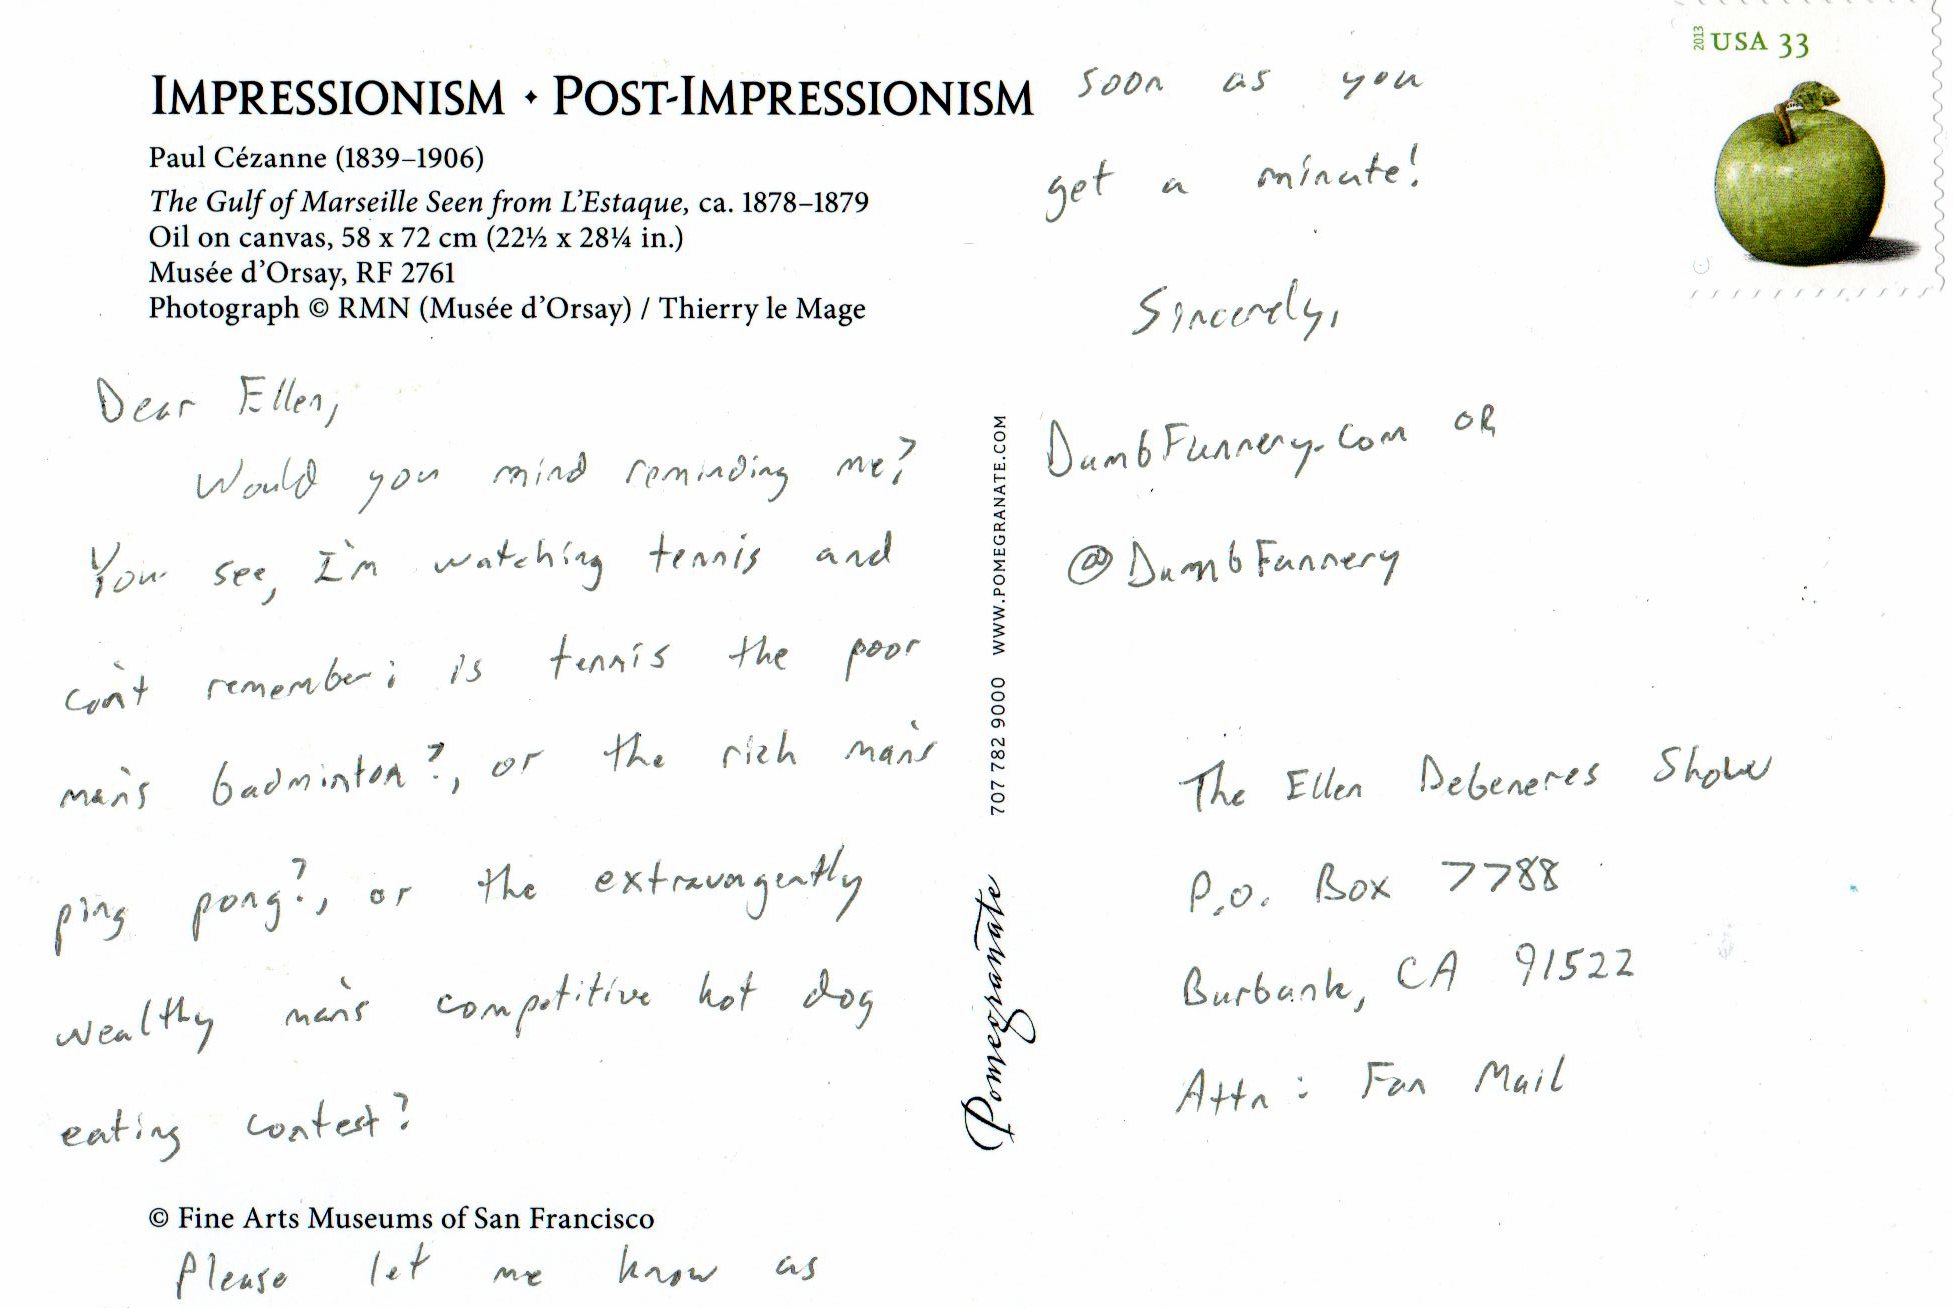 IMPRESSIONISM • POST-IMPRESSIONISM
Paul Cézanne (1839–1906)
The Gulf of Marseille Seen from L'Estaque, ca. 1878–1879
Oil on canvas, 58 x 72 cm (22½ x 28¼ in.)
Musée d'Orsay, RF 2761
Photograph © RMN (Musée d'Orsay) / Thierry le Mage
Dear Ellen,
Would you mind reminding me?
You see, I'm watching tennis and
can't remember: is tennis the poor
man's badminton?, or the rich man's
ping pong?, or the extravagently
wealthy man's competitive hot dog
eating contest?
© Fine Arts Museums of San Francisco
Please let me know as
soon as you
get a minute!
Sincerely,
DumbFunnery.com OR
@DumbFunnery
707 782 9000 WWW.POMEGRANATE.COM
Pomegranate
2013 USA 33
The Ellen Degeneres Show
P.O. Box 7788
Burbank, CA 91522
Attn: Fan Mail